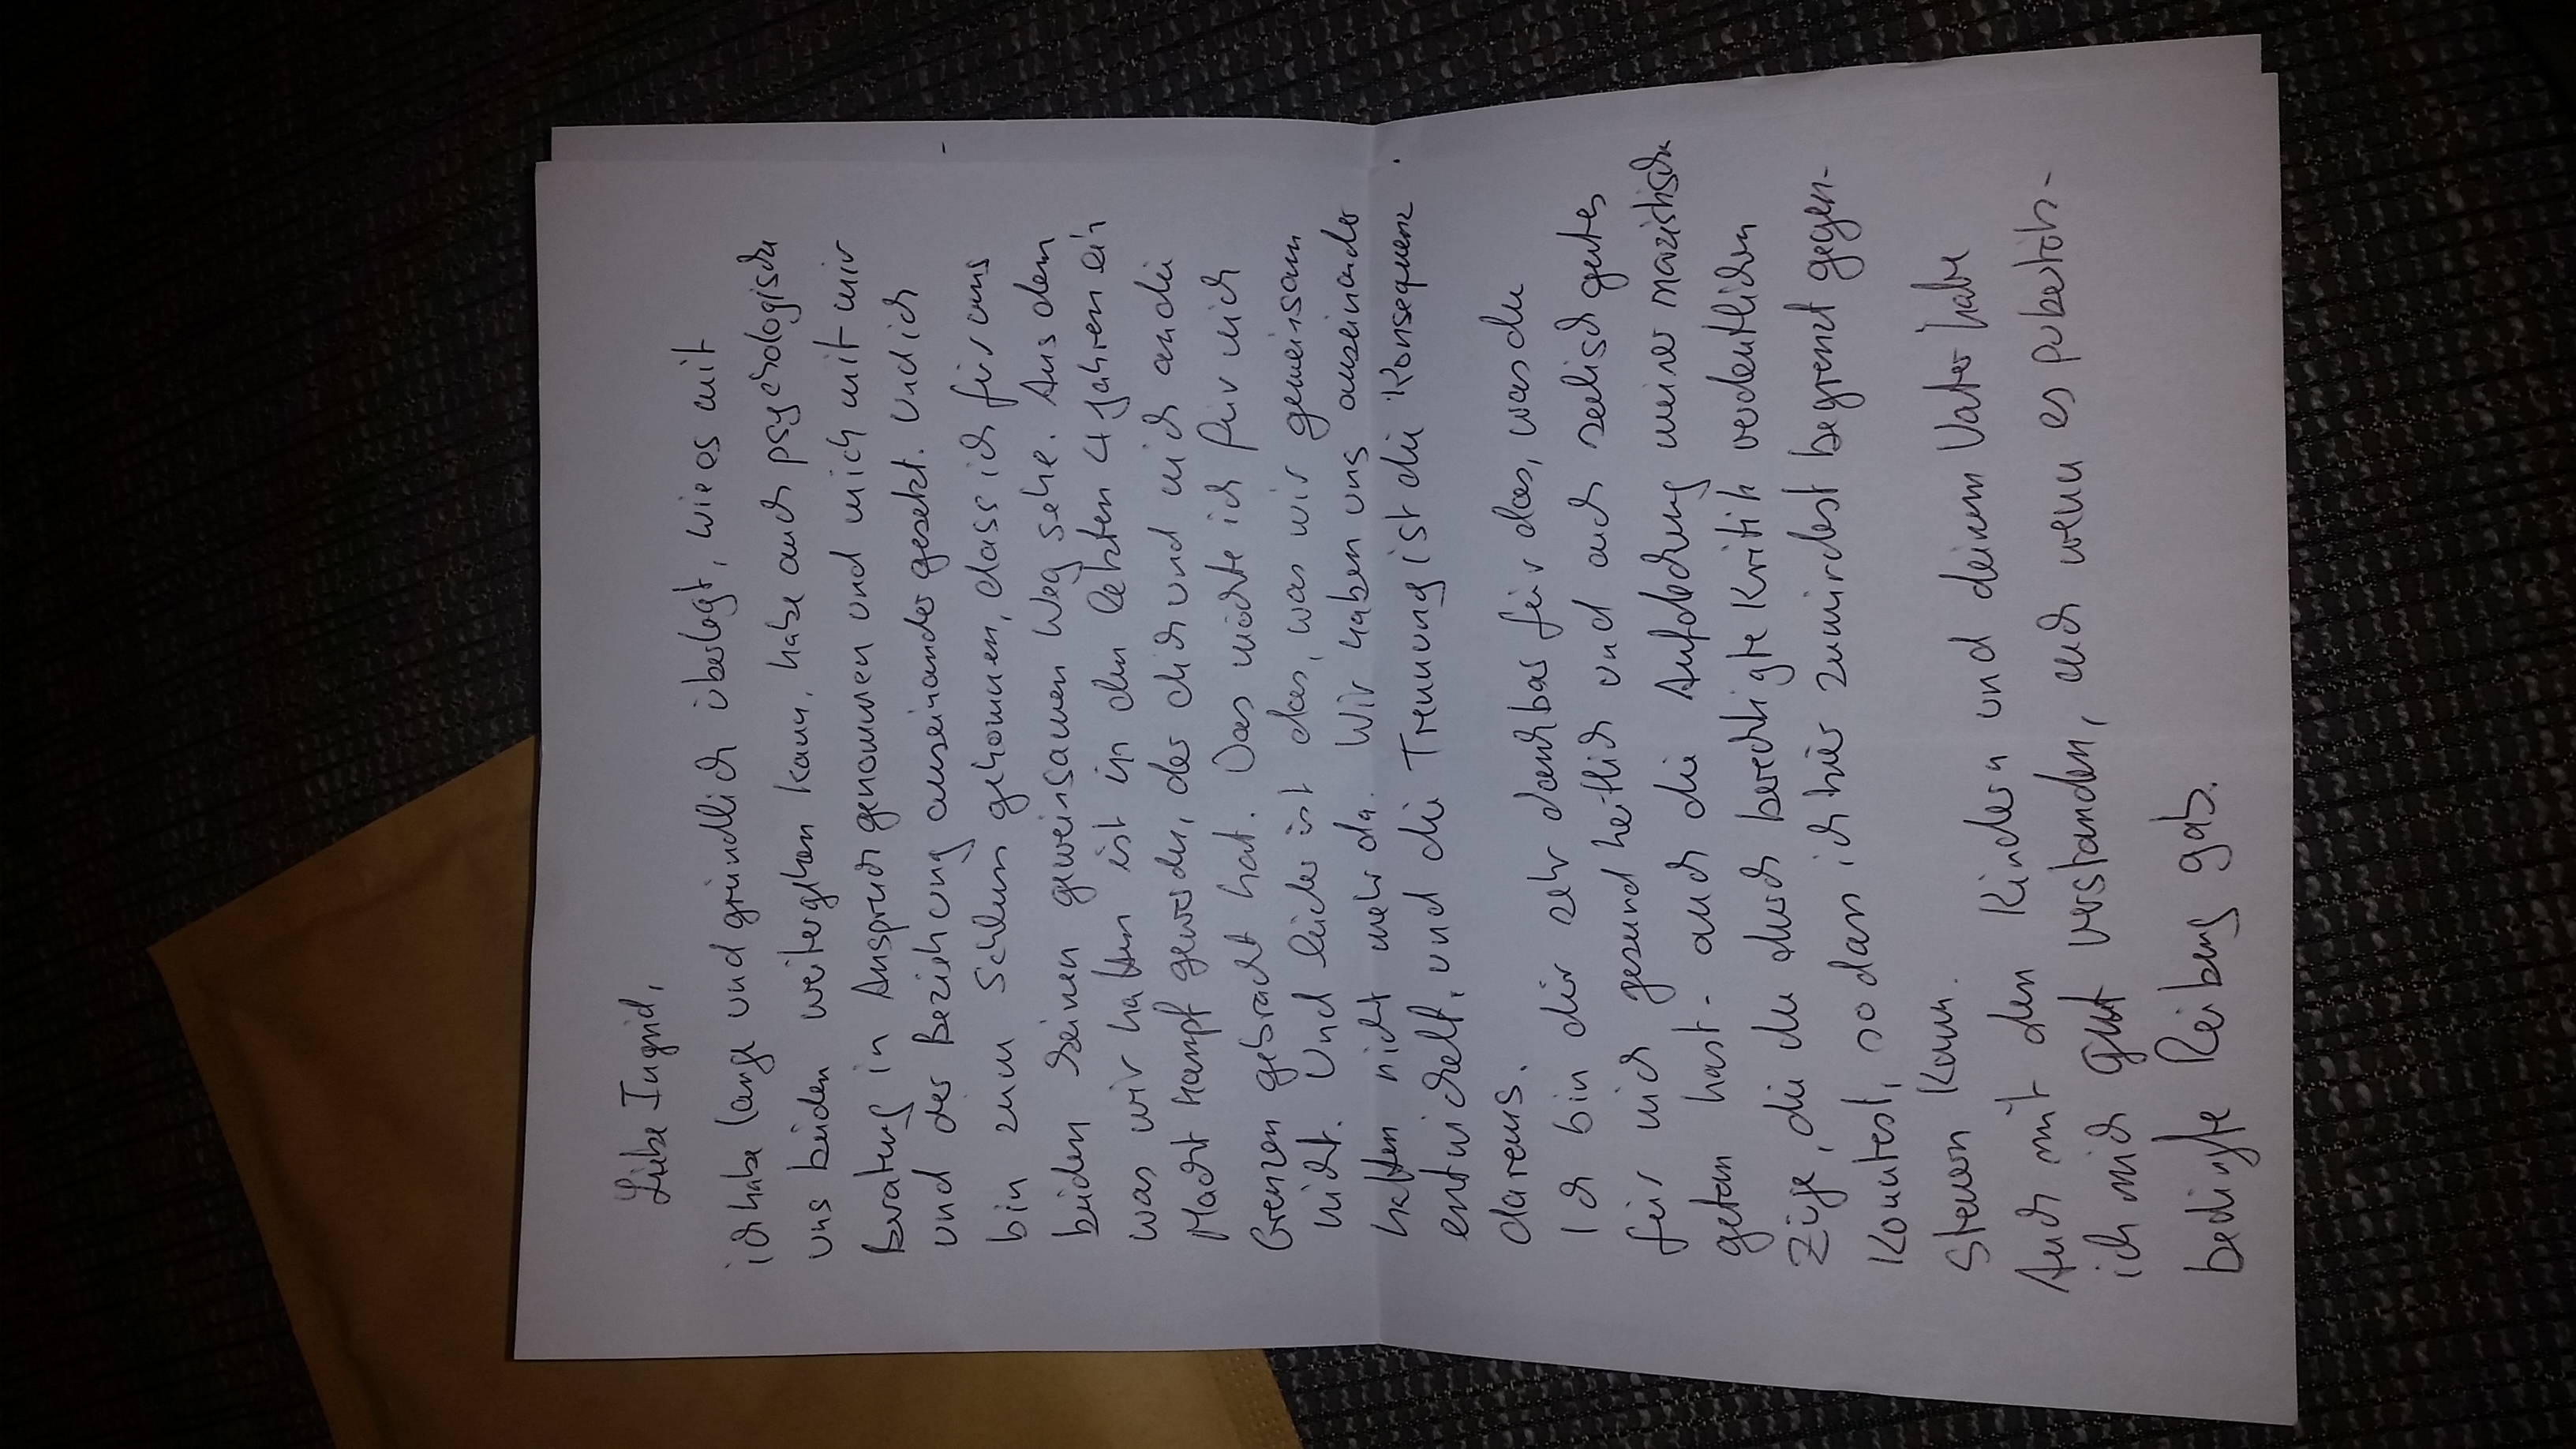 Liebe Ingrid,
ich habe lange und gründlich überlegt, wie es mit
uns beiden weitergehen kann, habe auch psychologische
Beratung in Anspruch genommen und mich mit mir
und der Beziehung auseinander gesetzt. Und ich
bin zum Schluss gekommen, dass ich für uns
beiden keinen gemeinsamen Weg sehe. Aus dem
was wir hatten ist in den letzten 4 Jahren ein
Machtkampf geworden, der dich und mich an die
Grenzen gebracht hat. Das möchte ich für mich
nicht. Und leider ist das, was wir gemeinsam
hatten nicht mehr da. Wir haben uns auseinander
entwickelt, und die Trennung ist die Konsequenz
daraus.
Ich bin dir sehr dankbar für das, was du
für mich gesundheitlich und auch seelisch gutes
getan hast - auch die Aufdeckung meiner narzistischen
Züge, die du durch berechtigte Kritik verdeutlichen
konntest, so dass ich hier zumindest begrenzt gegen-
steuern kann.
Auch mit den Kindern und deinem Vater habe
ich mich gut verstanden, auch wenn es pubertäts-
bedingte Reibung gab.